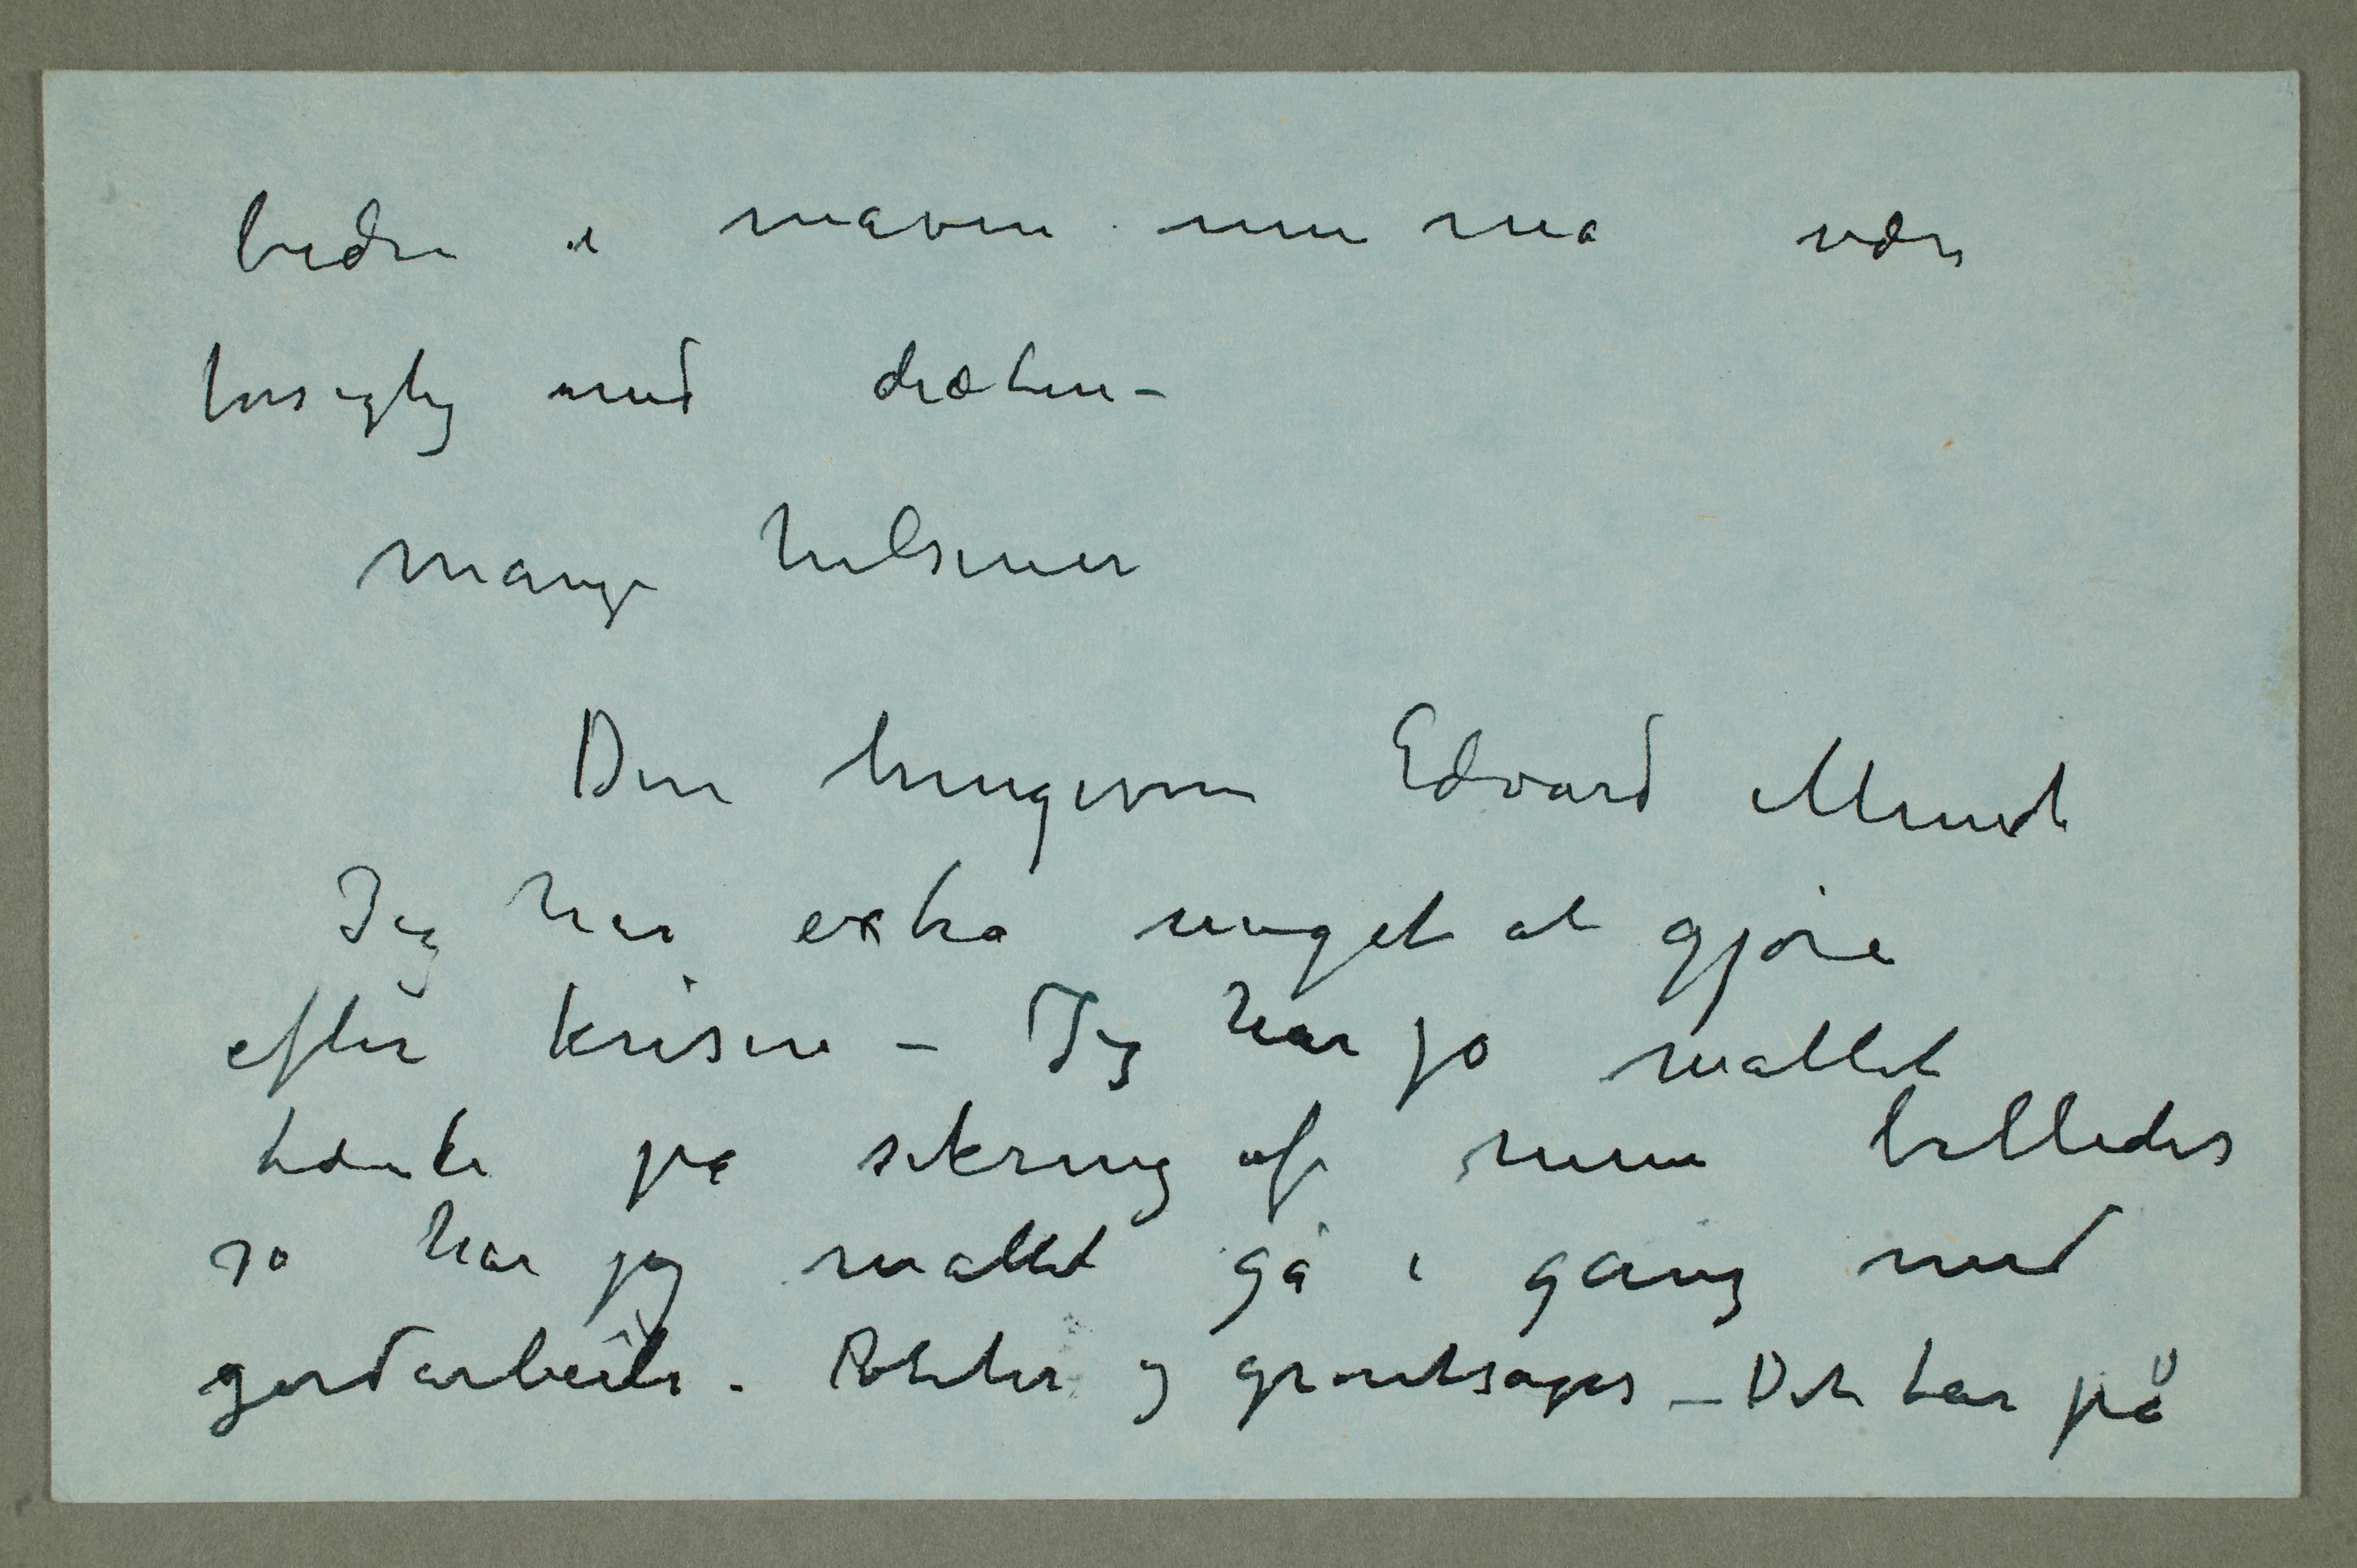 bedre i maven men må være
forsigtig med diæten –
mange hilsener
Din hengivne Edvard Munch
Jeg har extra meget at gjøre
efter krisen – Jeg har jo måttet
tænke på sikring af mine billeder
så har jeg måttet gå i gang med
gårdarbeide. Poteter og grøntsager – Det tar på